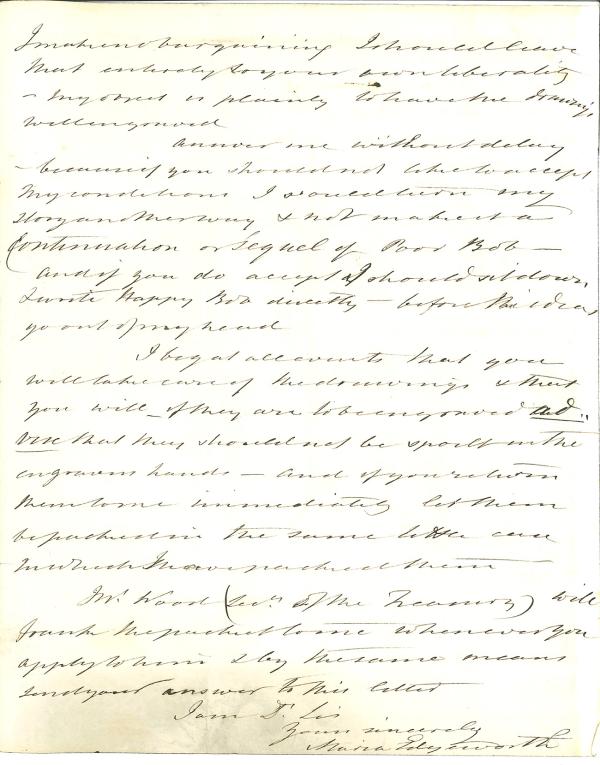 I make no bargaining I should leave
that entirely to your own liberality
- My object is plainly to have the drawings
well engraved
Answer me without delay
- because if you should not like to accept
my conditions I would turn my
story another way & not make it a
(Continuation or Sequel of Poor Bob -
and if you do accept I should sit down
& write Happy Bob directly - before the ideas
go out of my head
I beg at all events that you
will take care of the drawings & that
you will - if they are to be engraved ad"
vise that they should not be spoilt in the
engravers hands - and if you return
them to me immediately let them
be packed in the same little case
in which I have packed them
Mr. Wood (Secy. of the Treasury) will
frank the packet to me whenever you
apply to him & by the same means
send your answer to this letter
I am Dr. Sir
Yours sincerely
Maria Edgeworth